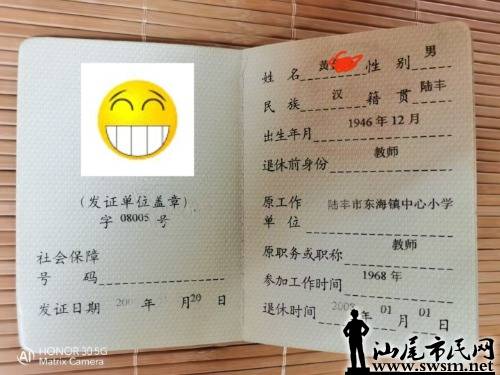 (发证单位盖章)
字 08005 号
社会保障
号 码
发证日期 年 月 20 日
姓 名 黄 性 别 男
民 族 汉 籍 贯 陆丰
出生年月 1946 年 12 月
退休前身份 教师
原工作
单 位 陆丰市东海镇中心小学
原职务或职称 教师
参加工作时间 1968 年
退休时间 年 01 月 01 日
AI HONOR 30 5G
Matrix Camera
汕尾市民网
www.swsm.net